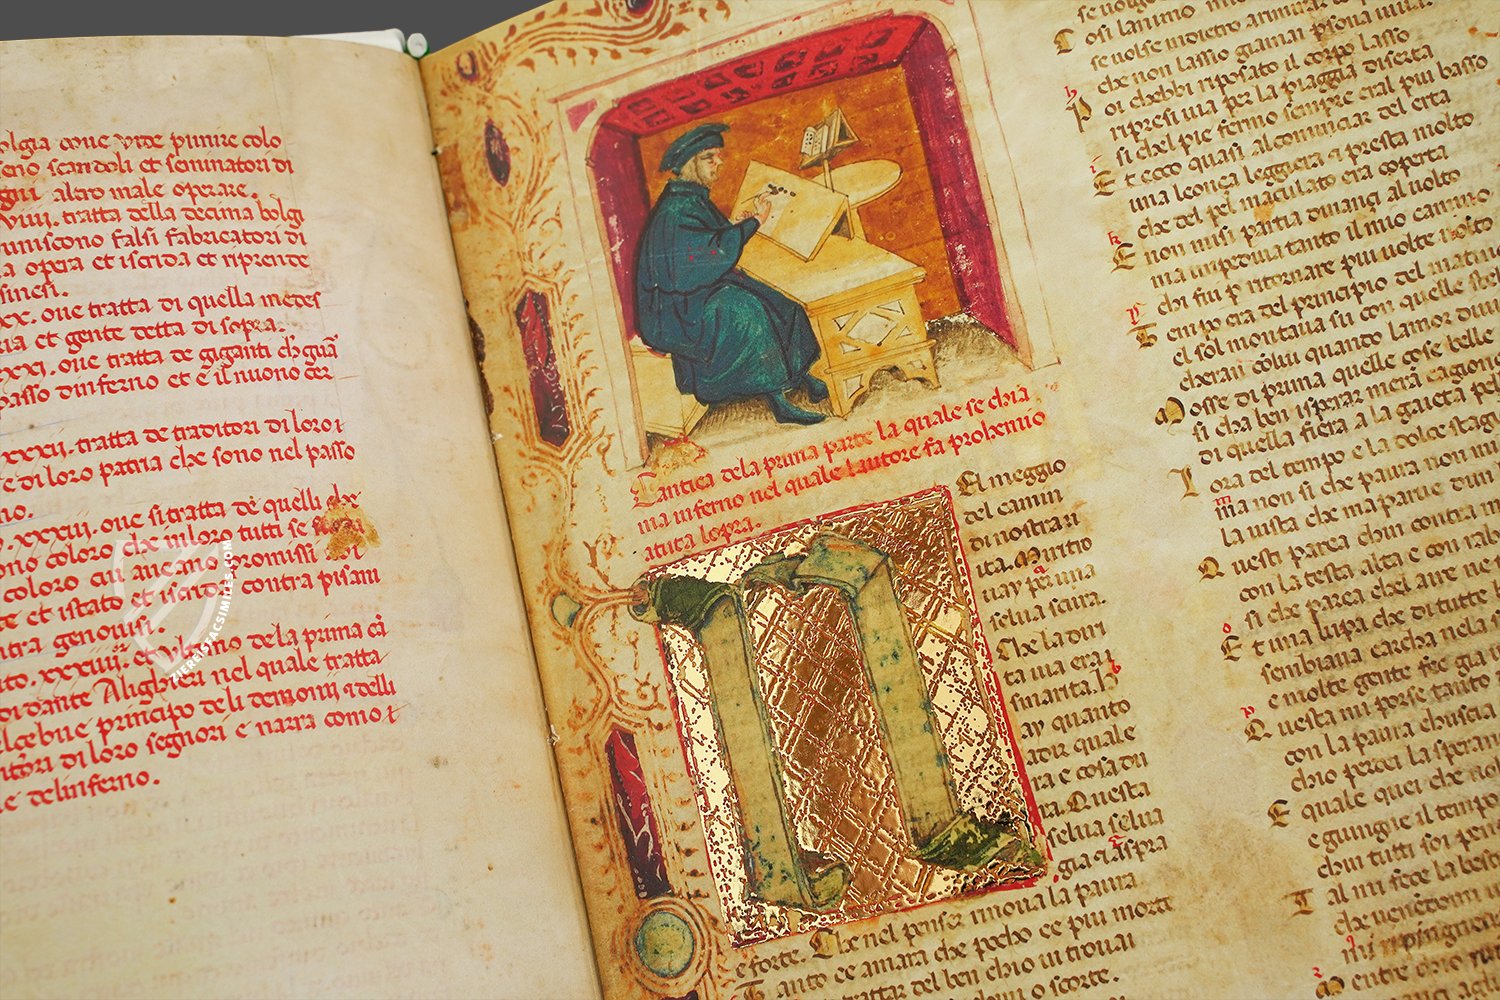 olgia oue vide punire colo
seno scandoli et seminatori di
gni altro male operare.
viiii. tratta della decima bolgi
uniscono falsi fabricatori di
a opera et iscrida et riprende
sinesi.
xx. oue tratta di quella medes
ria et gente detta di sopra.
xxxi. oue tratta de giganti ch guā
passo dinferno et e il nuono cer
xxxii. tratta de traditori di loro
e di loro patria che sono nel passo
no.
xxxiii. oue si tratta di quelli che
ono coloro che inloro tutti se
coloro cui aueano promissi
te et istato et iscrida contra pisani
ntra genouisi.
to. xxxiiii. et ultimo de la prima cā
di dante Alighieri nel quale tratta
elcebue principo deli demonii
di loro segnori e narra como
e delinferno.
ZIEREISFACSIMILES.COM
Cantica dela prima parte la quale se chia
ma inferno nel quale lautore fa prohemio
a tuta lopra.
N
El meggio
del camin
di nostra ui
ita. Mi ritro
uay per una
selua scura.
Che la diri
ta uia era
smarita. h
ay quanto
adir quale
ra e cosa du
ra. Questa
selua selua
gia aspra
e forte. Che nel penser rinoua la paura
Tanto ee amara che pocho ee piu morte
trattar del ben chio ui trouai
chom ui o scorte.
osi lanimo
se uolse indietro
che non lasso giamai psona uiua
Poi chebbi riposato il corpo lasso
ripresi uia per la piaggia diserta
si chel pie fermo sempre eral piu basso
Et ecco quasi al cominciar del erta
una leonça leggera e presta molto
che del pel maculato era coperta
E non misi partia dinançi al uolto
ma impediua tanto il mio camino
chi fui p ritornare piu uolte uolto
Tempo era del principio del matin
el sol montaua su con quelle
cheran cōlui quando lamor
Mosse di prima quelle cose belle
si cha ben isperar mera cagion
di quella fiera a la gaieta pel
Lora del tempo e la dolce stag
ma non si che paura non mi
la uista che maparue dun
Questi parea chen contra m
con la testa alta e con rab
si che parea chel aire ne
Et una lupa che di tutte
sembiaua carcha nela
e molte gente fee gia
Questa mi porse tanto
con la paura chuscia
chio perdei la speran
E quale quei che uol
e giungne il tempo
chen tutti soi pen
Tal mi feçe la best
che uenendomi
mi ripingeua
Mentre chio